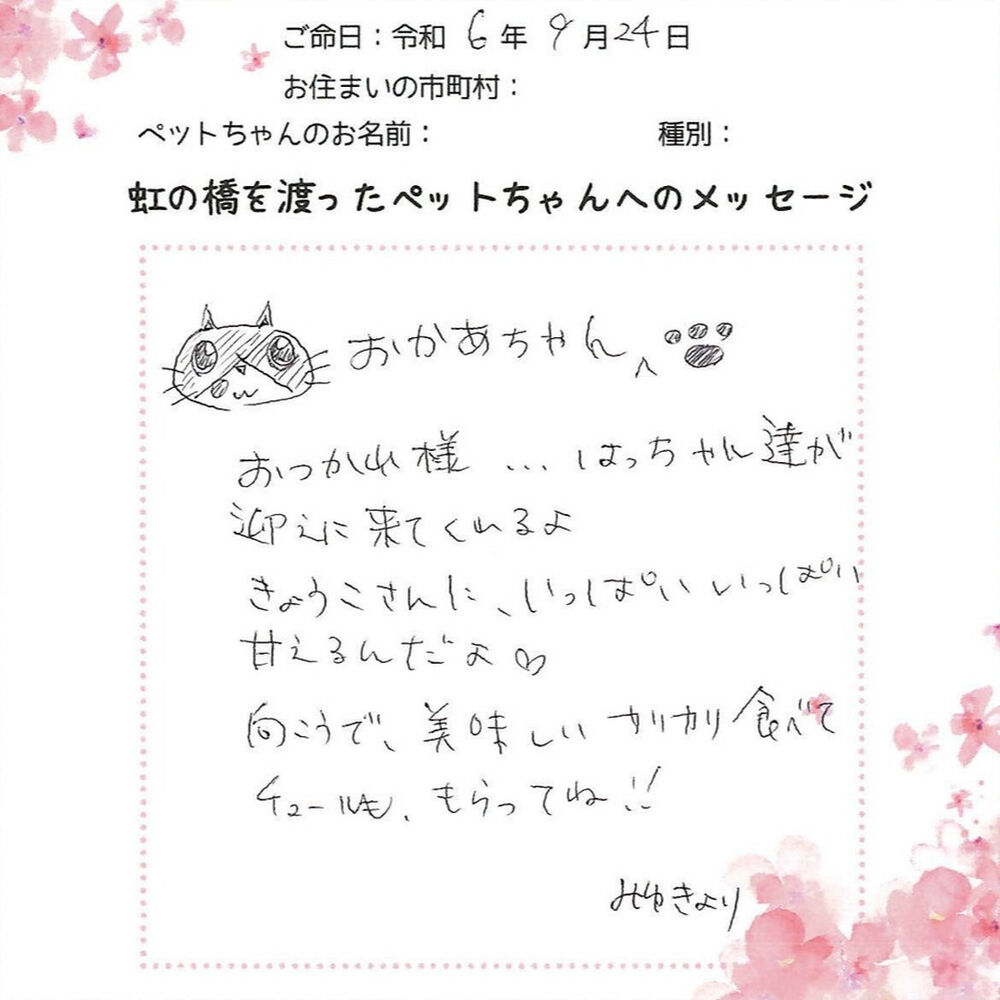 ご命日：令和 6 年 9 月 24 日
お住まいの市町村：
ペットちゃんのお名前： 種別：
虹の橋を渡ったペットちゃんへのメッセージ
おかあちゃんへ
おつかれ様 ... はっちゃん達が
迎えに来てくれるよ
きょうこさんに、いっぱいいっぱい
甘えるんだよ♡
向こうで、美味しいカリカリ食べて
チュールも、もらってね!!
みゆきより